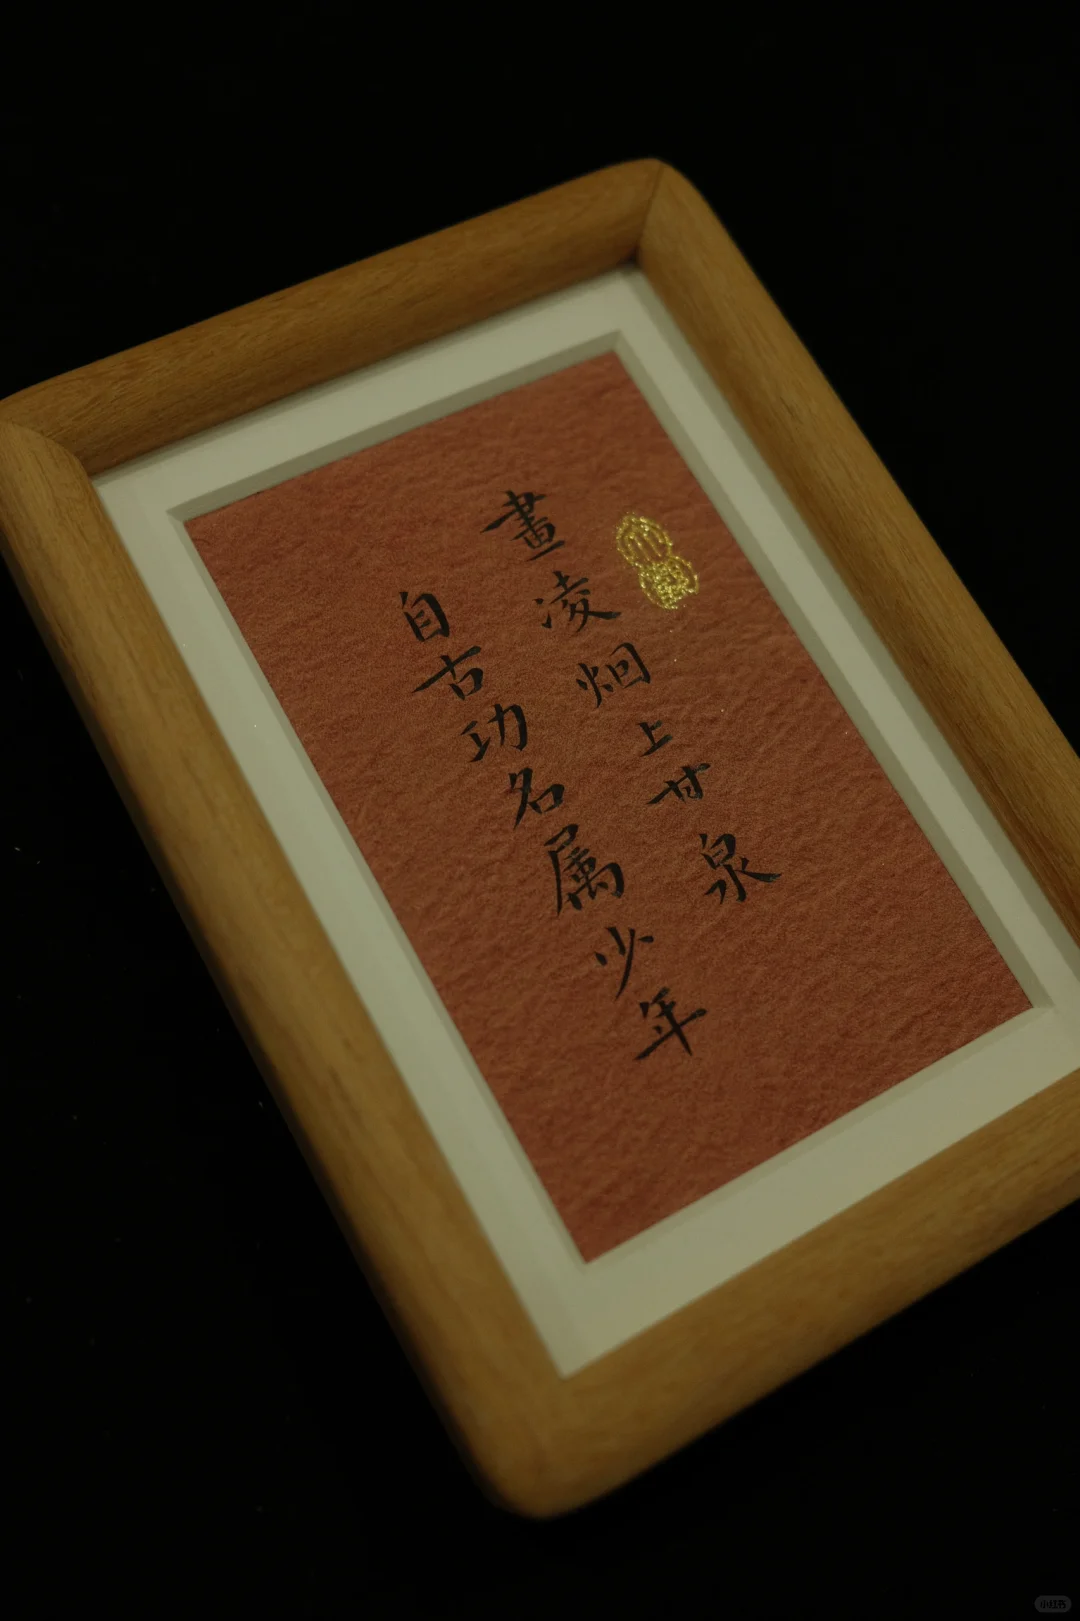 畫凌烟上甘泉
自古功名属少年
小红书